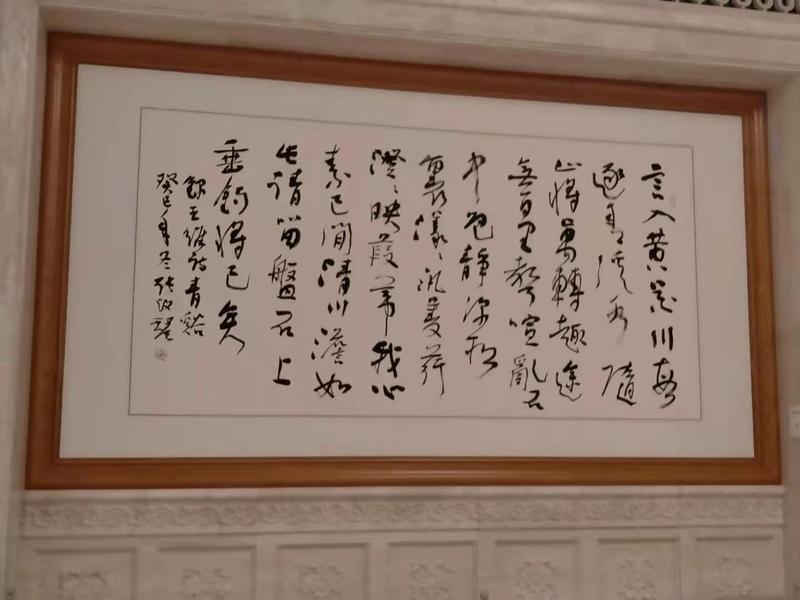 言入黃花川每
逐青溪水隨
山將萬轉趣途
無百里聲喧亂石
中色靜深松
裏漾〻汎菱荇
澄〻映葭葦我心
素已閒清川澹如
此請留盤石上
垂釣將已矣
錄王維詩青谿
癸巳年冬張改琴